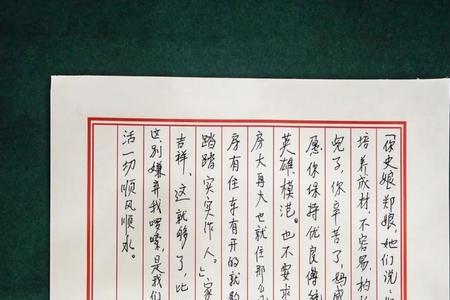 「你史娘郑娘,她们说,
培养成材,不容易,
了,你辛苦了,妈成
愿你保持优良傳統
英雄、模范。也不要求
房大再大也就住那么
有住车有开的就
踏踏实实作人。」家
吉祥,这就够了,比
这,别嫌弃我啰嗦,是我们
活一切顺风顺水。